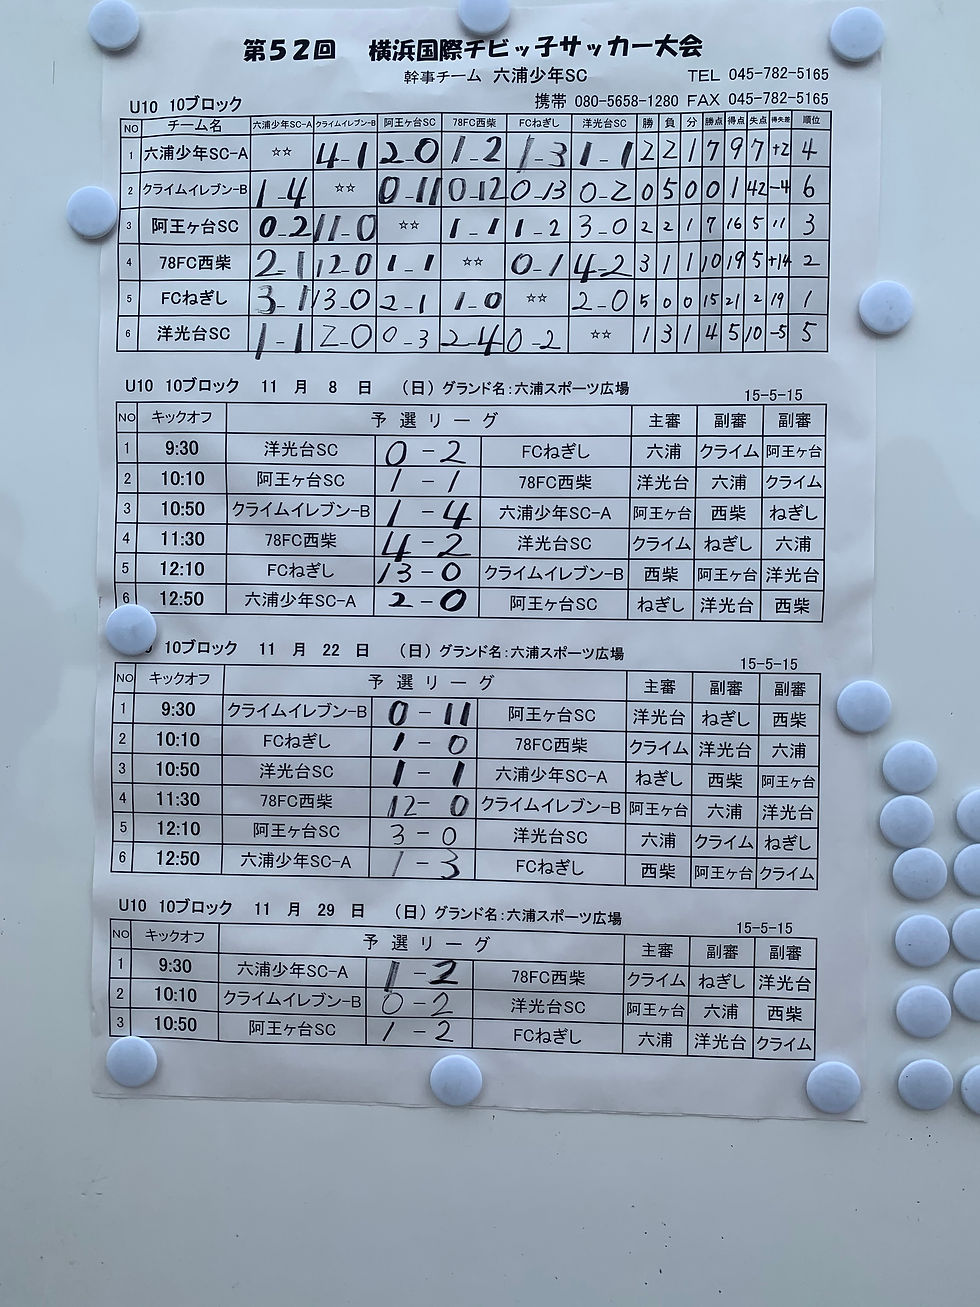 第52回 横浜国際チビッ子サッカー大会
幹事チーム 六浦少年SC TEL 045-782-5165
携帯 080-5658-1280 FAX 045-782-5165
U10 10ブロック
NO チーム名 六浦少年SC-A クライムイレブン-B 阿王ヶ台SC 78FC西柴 FCねぎし 洋光台SC 勝 負 分 勝点 得点 失点 得失差 順位
1 六浦少年SC-A ☆☆ 4-1 2-0 1-2 1-3 1-1 2 2 1 7 9 7 +2 4
2 クライムイレブン-B 1-4 ☆☆ 0-11 0-12 0-13 0-2 0 5 0 0 1 42 -4 6
3 阿王ヶ台SC 0-2 11-0 ☆☆ 1-1 1-2 3-0 2 2 1 7 16 5 11 3
4 78FC西柴 2-1 12-0 1-1 ☆☆ 0-1 4-2 3 1 1 10 19 5 +14 2
5 FCねぎし 3-1 13-0 2-1 1-0 ☆☆ 2-0 5 0 0 15 21 2 19 1
6 洋光台SC 1-1 2-0 0-3 2-4 0-2 ☆☆ 1 3 1 4 5 10 -5 5
U10 10ブロック 11 月 8 日 (日) グランド名:六浦スポーツ広場
15-5-15
NO キックオフ 予選リーグ 主審 副審 副審
1 9:30 洋光台SC 0-2 FCねぎし 六浦 クライム 阿王ヶ台
2 10:10 阿王ヶ台SC 1-1 78FC西柴 洋光台 六浦 クライム
3 10:50 クライムイレブン-B 1-4 六浦少年SC-A 阿王ヶ台 西柴 ねぎし
4 11:30 78FC西柴 4-2 洋光台SC クライム ねぎし 六浦
5 12:10 FCねぎし 13-0 クライムイレブン-B 西柴 阿王ヶ台 洋光台
6 12:50 六浦少年SC-A 2-0 阿王ヶ台SC ねぎし 洋光台 西柴
10ブロック 11 月 22 日 (日) グランド名:六浦スポーツ広場
15-5-15
NO キックオフ 予選リーグ 主審 副審 副審
1 9:30 クライムイレブン-B 0-11 阿王ヶ台SC 洋光台 ねぎし 西柴
2 10:10 FCねぎし 1-0 78FC西柴 クライム 洋光台 六浦
3 10:50 洋光台SC 1-1 六浦少年SC-A ねぎし 西柴 阿王ヶ台
4 11:30 78FC西柴 12-0 クライムイレブン-B 阿王ヶ台 六浦 洋光台
5 12:10 阿王ヶ台SC 3-0 洋光台SC 六浦 クライム ねぎし
6 12:50 六浦少年SC-A 1-3 FCねぎし 西柴 阿王ヶ台 クライム
U10 10ブロック 11 月 29 日 (日) グランド名:六浦スポーツ広場
15-5-15
NO キックオフ 予選リーグ 主審 副審 副審
1 9:30 六浦少年SC-A 1-2 78FC西柴 クライム ねぎし 洋光台
2 10:10 クライムイレブン-B 0-2 洋光台SC 阿王ヶ台 六浦 西柴
3 10:50 阿王ヶ台SC 1-2 FCねぎし 六浦 洋光台 クライム